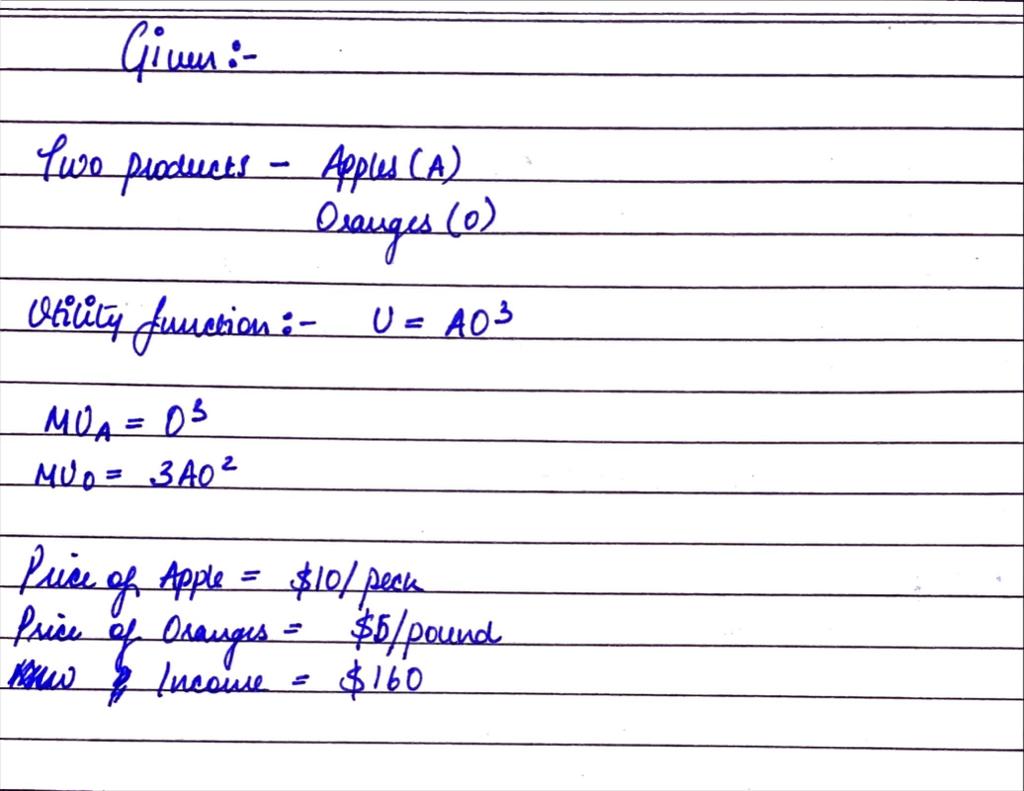 Given :-
Two products - Apples (A)
Oranges (O)
Utility function :- U = AO³
MU_A = O³
MU_O = 3AO²
Price of Apple = $10/peck
Price of Oranges = $5/pound
Income = $160